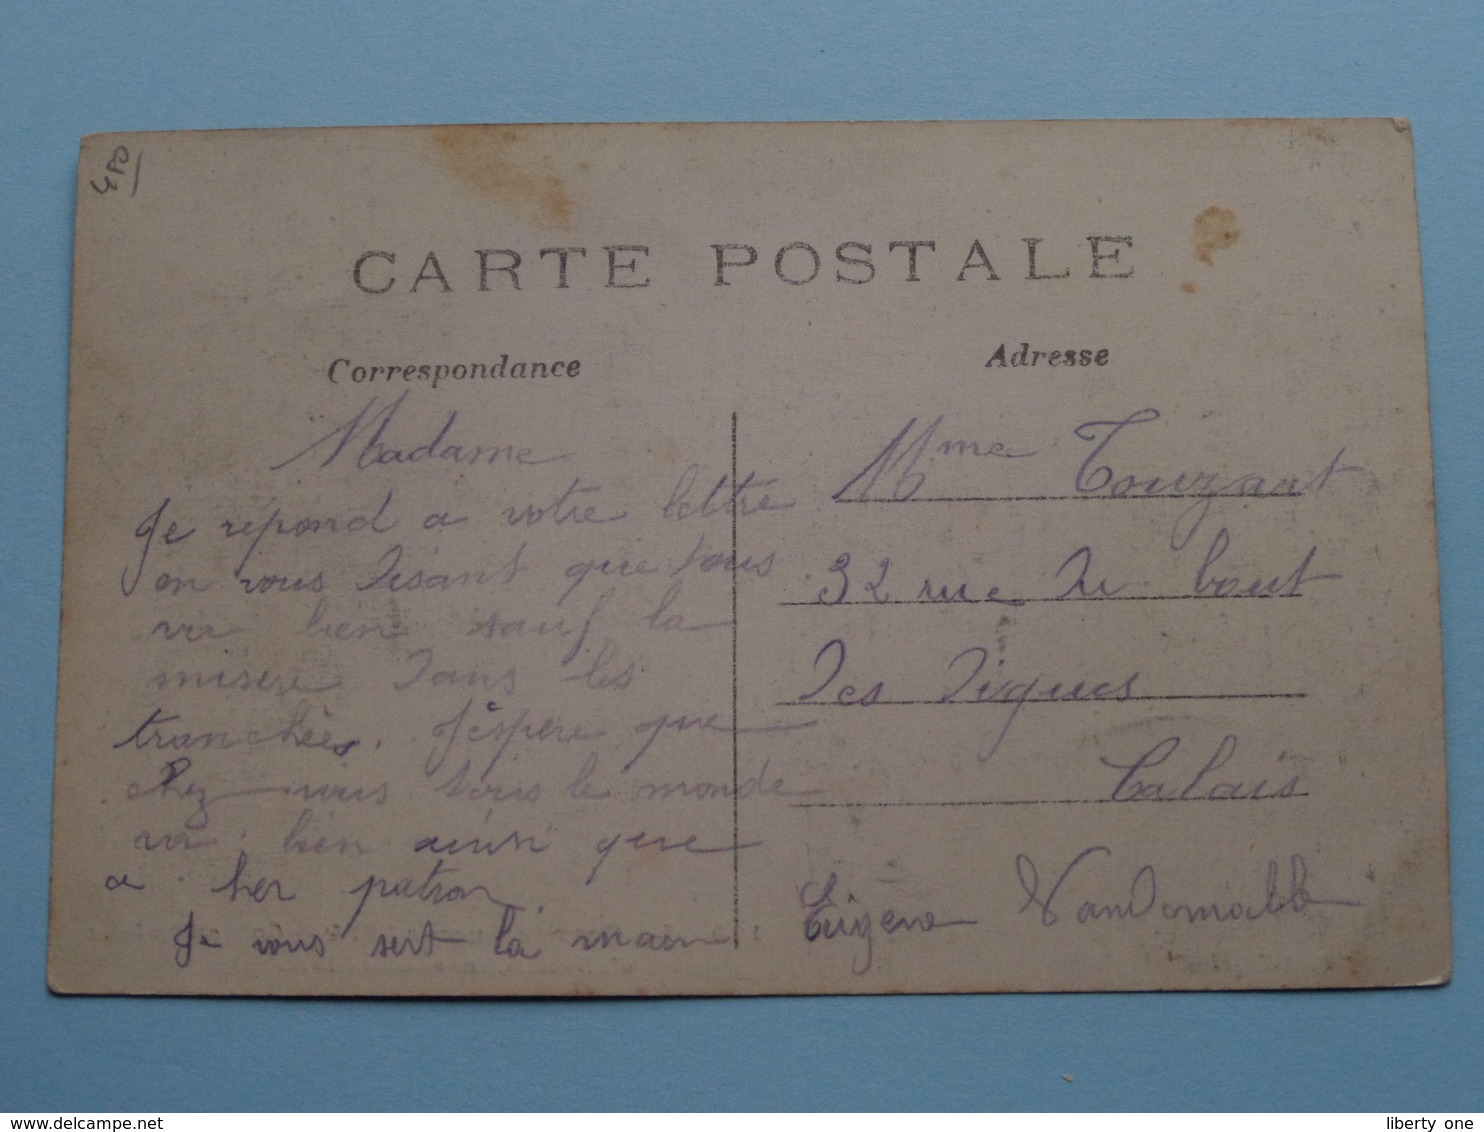 480
CARTE POSTALE
Correspondance
Adresse
Madame
Je répond a votre lettre
en vous disant que tous
va bien sauf la
misere dans les
tranchées. J'éspere que
chez vous tous le monde
va bien ainsi que
a her patron
Je vous sert la main
Mme Touzart
32 rue du bout
des digues
Calais
Eugène
www.delcampe.net
liberty one